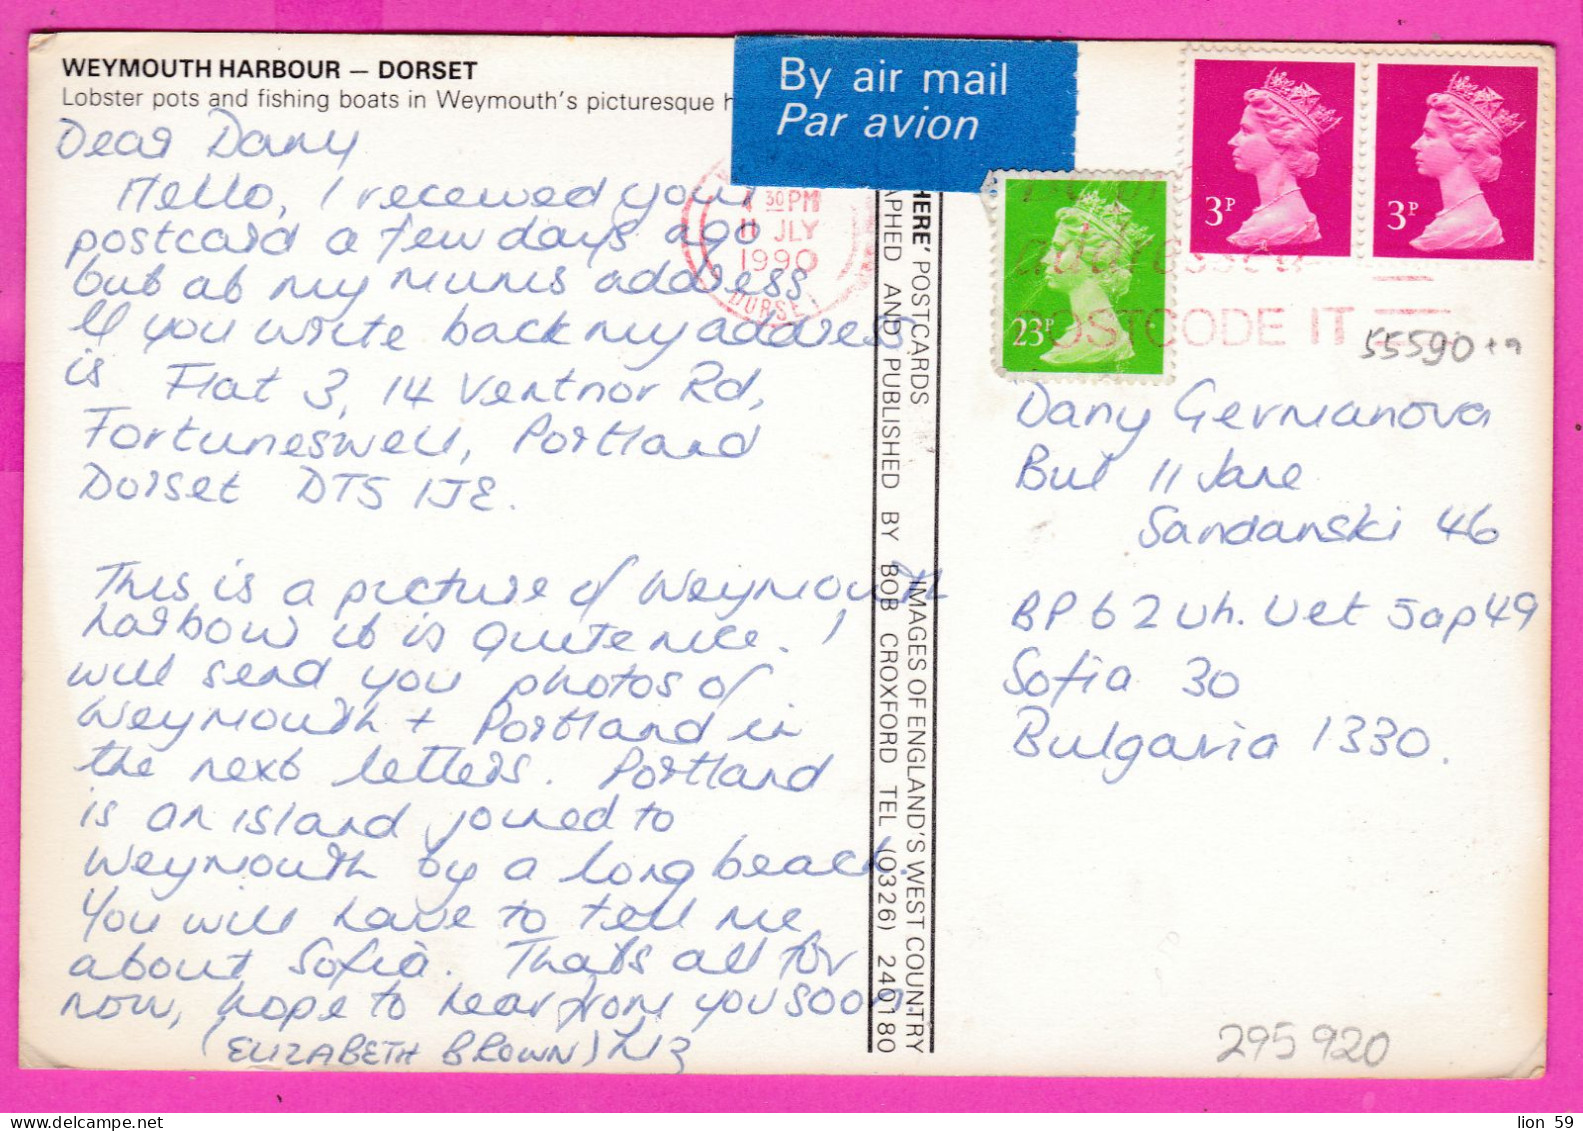 WEYMOUTH HARBOUR – DORSET
Lobster pots and fishing boats in Weymouth's picturesque h
By air mail
Par avion
Dear Dany
Hello, I received your
postcard a few days ago
but at my mums address
If you write back my address
is Flat 3, 14 Ventnor Rd,
Fortuneswell, Portland
Dorset DT5 1JE.
This is a picture of Weymouth
harbour it is quite nice. I
will send you photos of
Weymouth + Portland in
the next letters. Portland
is an island joined to
Weymouth by a long beach.
You will have to tell me
about Sofia. Thats all for
now, hope to hear from you soon
(ELIZABETH BROWN) Liz
30 PM
11 JLY
1990
DORSET
HERE' POSTCARDS IMAGES OF ENGLAND'S WEST COUNTRY
APHED AND PUBLISHED BY BOB CROXFORD TEL (0326) 240180
3P
3P
23P
POSTCODE IT
55590+a
Dany Germanova
Bul 11 Jane
Sandanski 46
BP. 62 Uh. Vet Sap 49
Sofia 30
Bulgaria 1330.
295920
lion 59